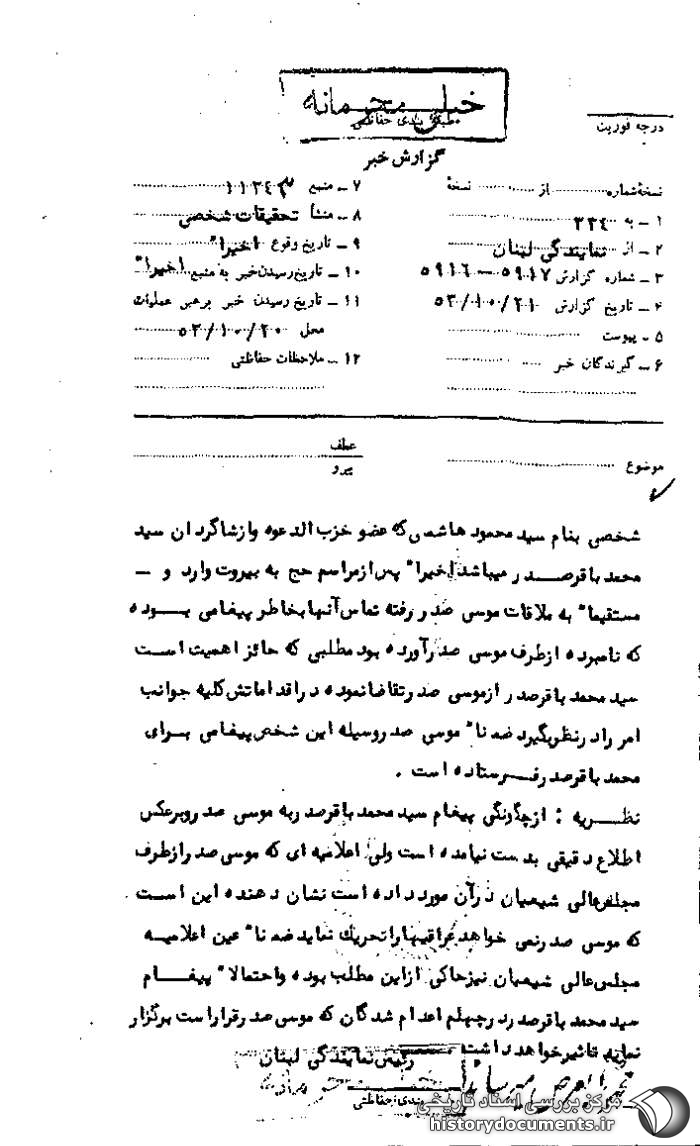 خیلی محرمانه
طبقه بندی حفاظتی
درجه فوریت
گزارش خبر
نسخهٔ شماره از نسخهٔ
۱ – به ۳۳۴
۲ – از نمایندگی لبنان
۳ – شماره گزارش ۵۹۱۷ – ۵۹۱۶
۴ – تاریخ گزارش ۵۳/۱۰/۲۱
۵ – پیوست
۶ – گیرندگان خبر
۷ – منبع ۱۱۲۴۳
۸ – منشأ تحقیقات شخصی
۹ – تاریخ وقوع اخیرا"
۱۰ – تاریخ رسیدن خبر به منبع اخیرا"
۱۱ – تاریخ رسیدن خبر برهبر عملیات
محل ۵۳/۱۰/۲۰
۱۲ – ملاحظات حفاظتی
موضوع
عطف
پیرو
شخصی بنام سید محمود هاشمی که عضو حزب الدعوه و از شاگردان سید
محمد باقر صدر میباشد اخیرا" پس از مراسم حج به بیروت وارد و –
مستقیما" به ملاقات موسی صدر رفته تماس آنها بخاطر پیغامی بوده
که نامبرده از طرف موسی صدر آورده بود مطلبی که حائز اهمیت است
سید محمد باقر صدر از موسی صدر تقاضا نموده در اقداماتش کلیه جوانب
امر را در نظر بگیرد ضمنا" موسی صدر وسیله این شخص پیغامی برای
محمد باقر صدر فرستاده است .
نظریه : از چگونگی پیغام سید محمد باقر صدر به موسی صدر و برعکس
اطلاع دقیقی بدست نیامده است ولی اعلامیه ای که موسی صدر از طرف
مجلس عالی شیعیان در آن مورد داده است نشان دهنده این است
که موسی صدر نمی خواهد عراقیها را تحریك نماید ضمنا" عین اعلامیه
مجلس عالی شیعیان نیز حاکی از این مطلب بوده و احتمالا" پیغام
سید محمد باقر صدر در چهلم اعدام شدگان که موسی صدر قرار است برگزار
نماید تاثیر خواهد داشت
رئیس نمایندگی لبنان
بندی حفاظتی
مرکز بررسی اسناد تاریخی
historydocuments.ir